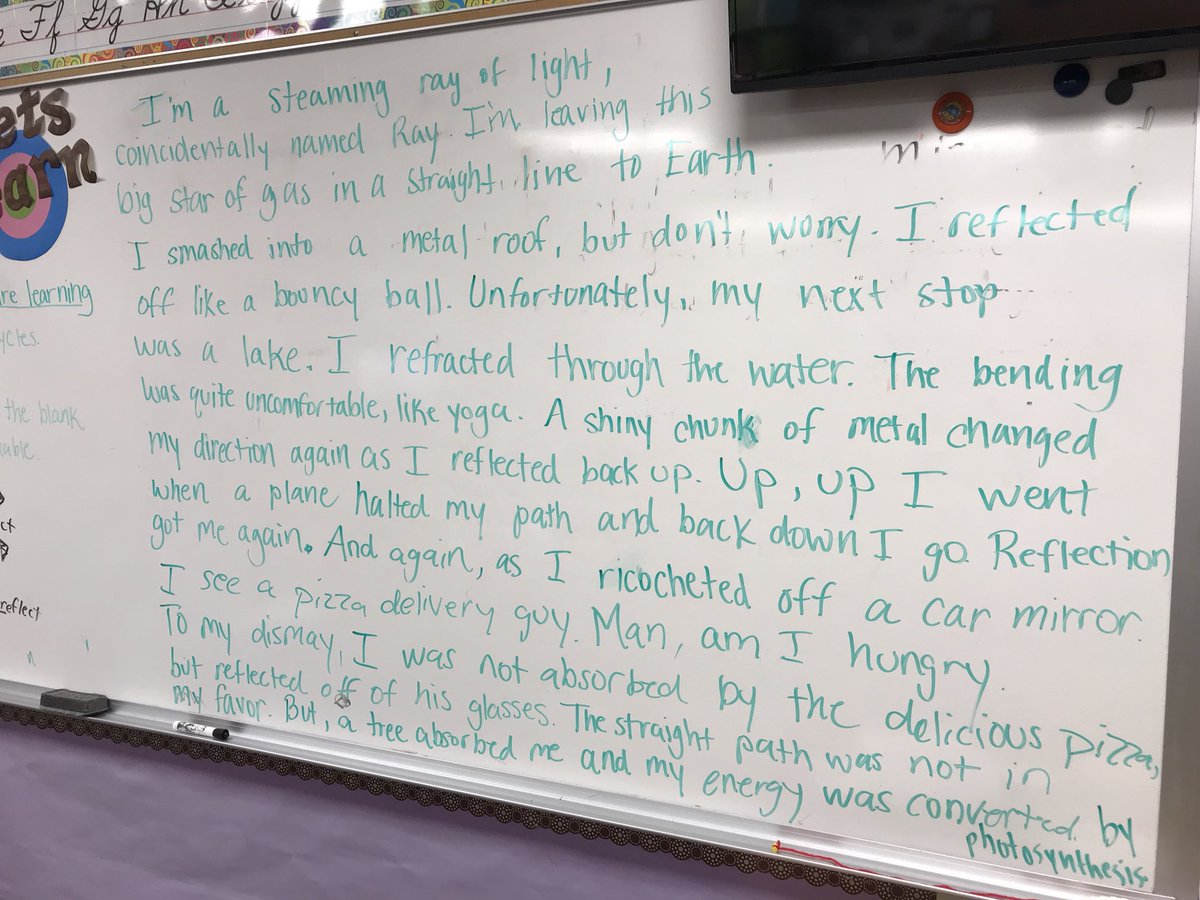 Ff Gg Hh
ets
earn
re learning
ycles.
the blank
able.
ct
reflect
I'm a steaming ray of light,
coincidentally named Ray. I'm leaving this
big star of gas in a straight line to Earth.
I smashed into a metal roof, but don't worry. I reflected
off like a bouncy ball. Unfortonately, my next stop
was a lake. I refracted through the water. The bending
was quite uncomfortable, like yoga. A shiny chunk of metal changed
my direction again as I reflected back up. Up, up I went
when a plane halted my path and back down I go. Reflection
got me again. And again, as I ricocheted off a car mirror.
I see a pizza delivery guy. Man, am I hungry.
To my dismay, I was not absorbed by the delicious pizza,
but reflected off of his glasses. The straight path was not in
my favor. But, a tree absorbed me and my energy was converted by
photosynthesis